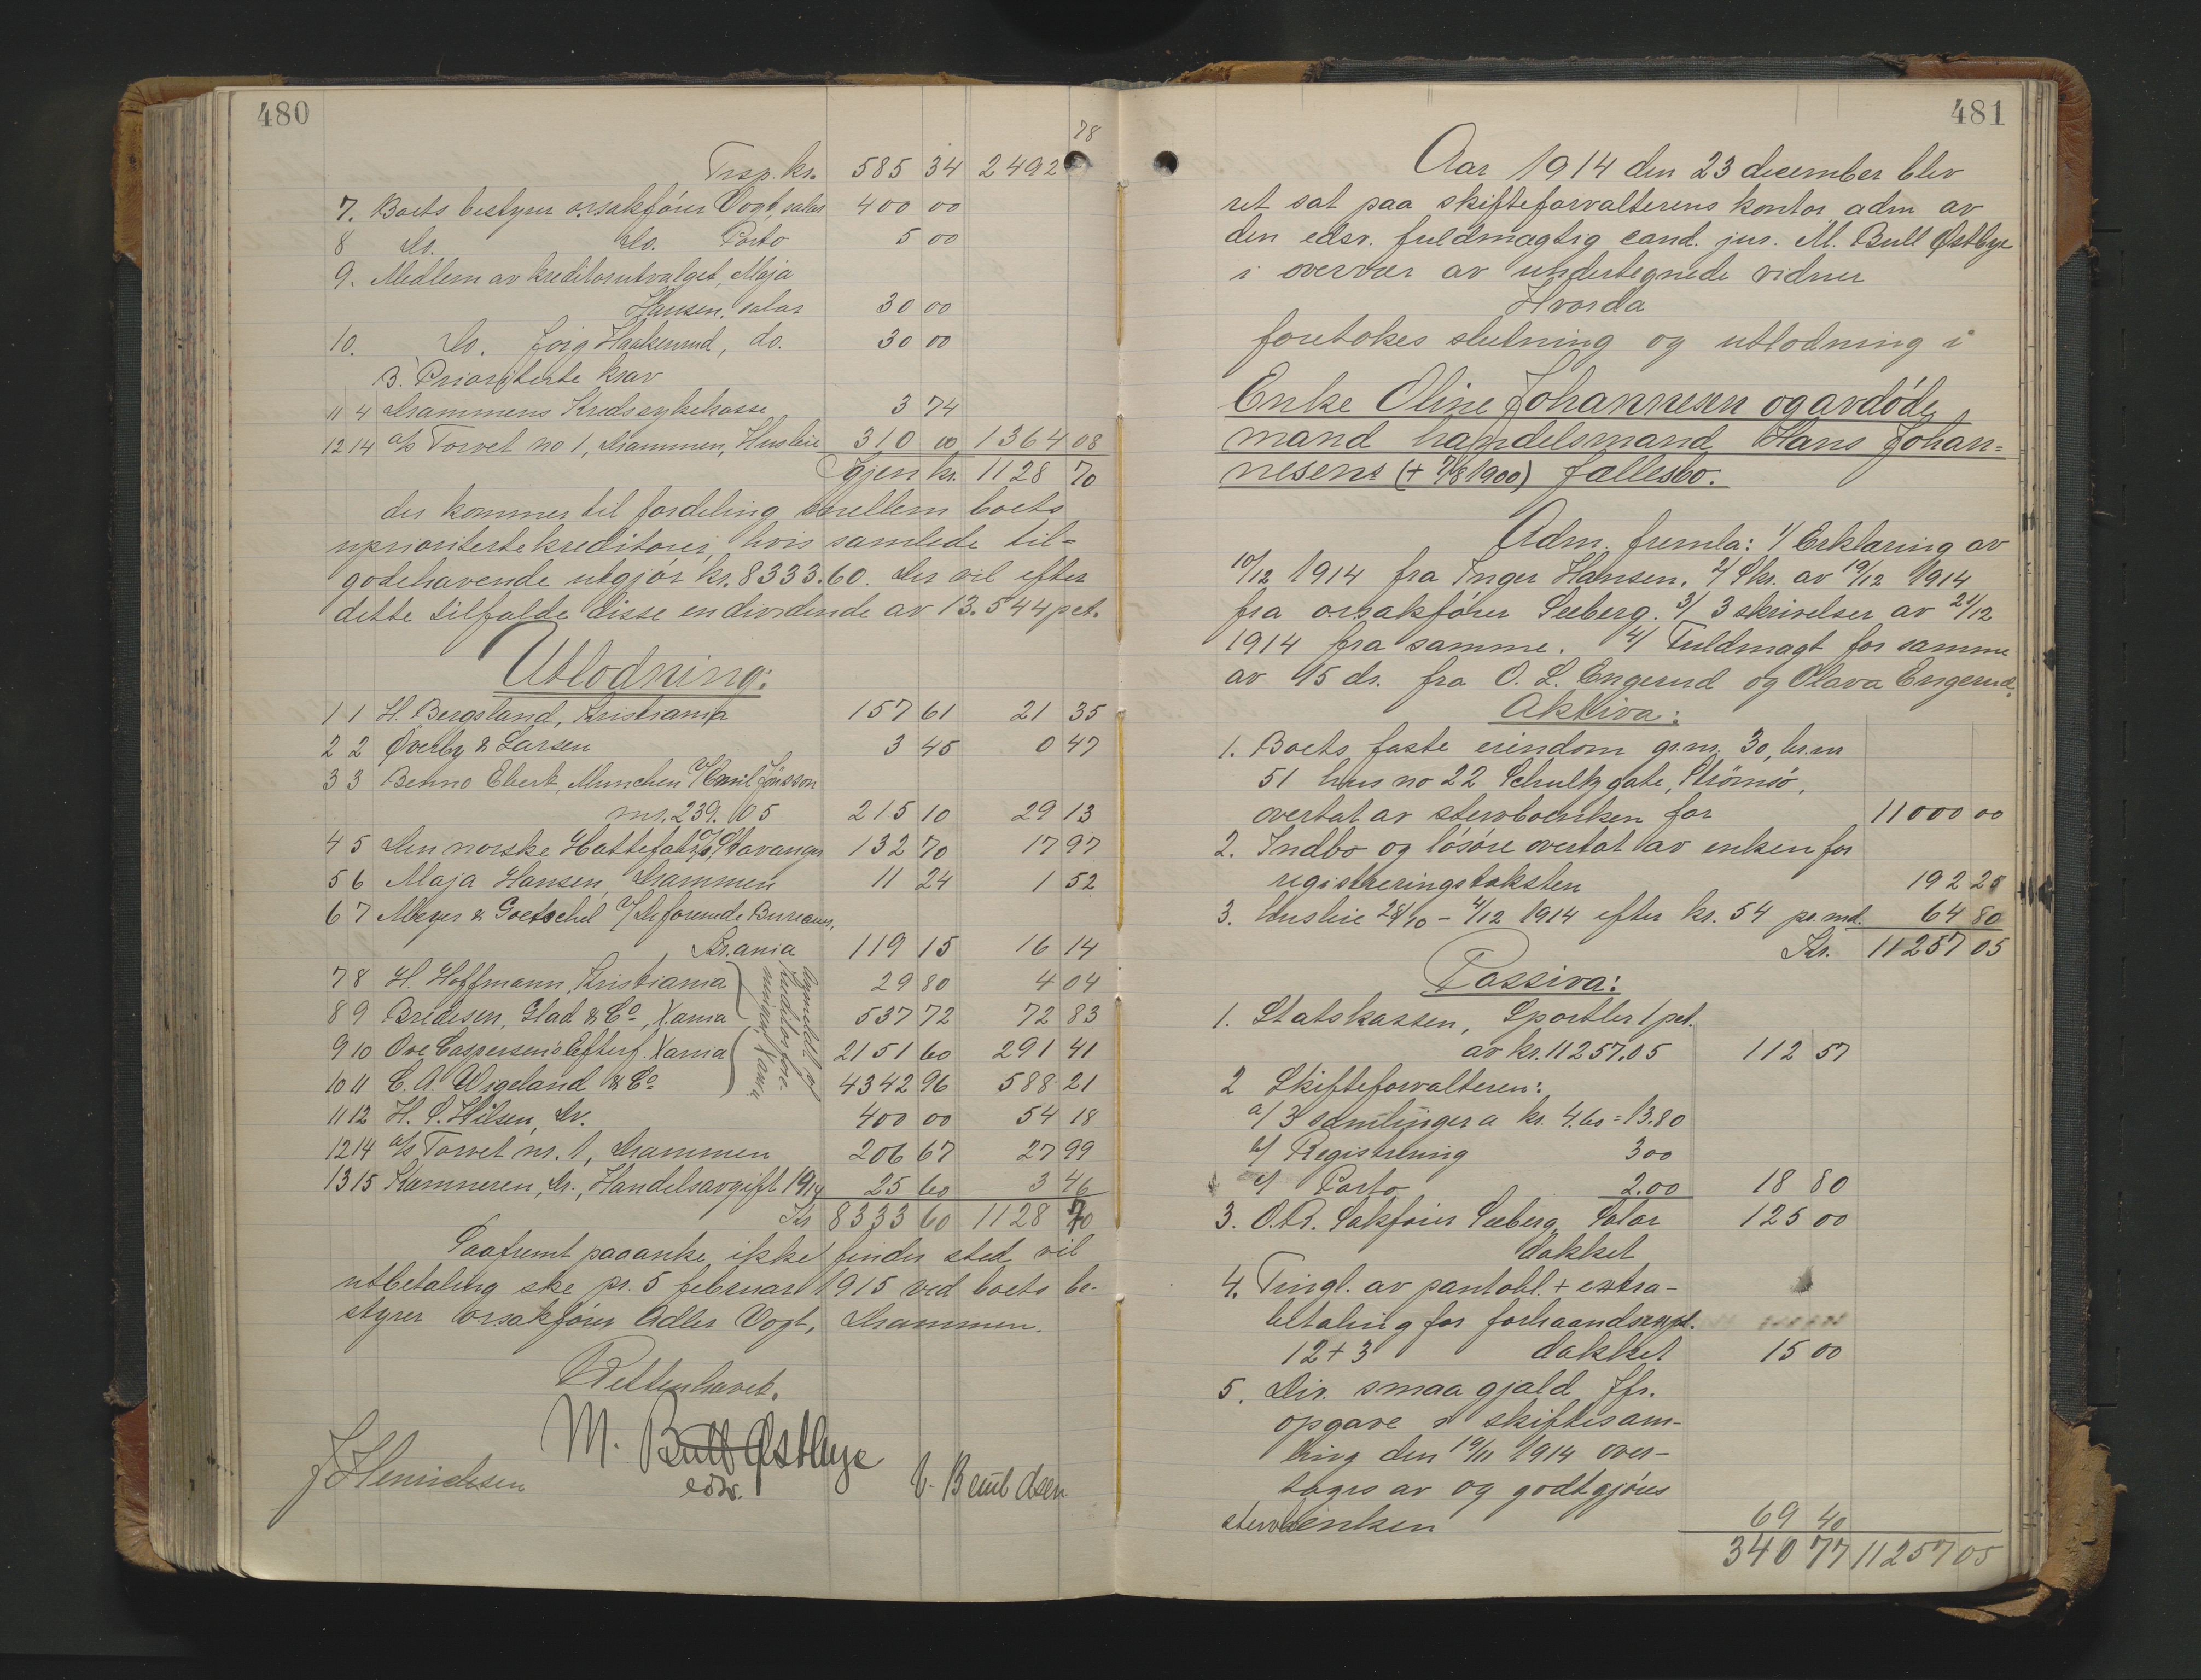 480
78
Trsp. kr. 585 34 2492
7. Boets bestyrer o.r.sakfører Vogt, salær 400 00
8 Do. Do. Porto 5 00
9. Medlem av kreditorutvalget, Maja
Hansen, salær 30 00
10. Do. Haakenrud, do. 30 00
B. Prioriterte krav
11 4 Drammens Kredssykekasse 3 74
12 14 a/s Torvet no 1, Drammen, Husleie 310 00 1364 08
Igjen kr. 1128 70
der kommer til fordeling mellem boets
uprioriterte kreditorer, hvis samlede til-
godehavende utgjør kr. 8333.60. Der vil efter
dette tilfalde disse en dividende av 13.544 pct.
Utlodning:
1 1 H. Bergsland, Kristiania 157 61 21 35
2 2 Øverby & Larsen 3 45 0 47
3 3 Benno Ebert, Munchen v/ Emil Jönsson
mr. 239.05 215 10 29 13
4 5 Den norske Hattefabr., Stavanger 132 70 17 97
5 6 Maja Hansen, Drammen 11 24 1 52
6 7 Meyer & Goetschel v/ De forenede Bureauer,
Kr.ania 119 15 16 14
7 8 H. Hoffmann, Kristiania 29 80 4 04
8 9 Bredesen, Glad & Co, X.ania 537 72 72 83
9 10 Ove Caspersens Efterf. Xania 2151 60 291 41
10 11 C. A. Wigeland & Co 4342 96 588 21
anmeldt v/ kreditorfore-
ningen, Xania
11 12 H. S. Hilsen, Dr. 400 00 54 18
12 14 a/s Torvet nr. 1, Drammen 206 67 27 99
13 15 Kæmneren, Dr., Handelsavgift 1914 25 60 3 46
Kr 8333 60 1128 70
Saafremt paaanke ikke finder sted vil
utbetaling ske pr. 5 februar 1915 ved boets be-
styrer o.r.sakfører Adler Vogt, Drammen.
Retten hævet.
M. Bull Østbye
edsv.
J Henrichsen
Berntdsen
481
Aar 1914 den 23 december blev
ret sat paa skifteforvalterens kontor adm av
den edsv. fuldmægtig cand. jur. M. Bull Østbye
i overvær av undertegnede vidner
Hvorda
foretokes slutning og utlodning i
Enke Oline Johannesen og avdøde
mand handelsmand Hans Johan=
nesens (+ 7/8 1900) fællesbo.
Adm. fremla: 1/ Erklæring av
10/12 1914 fra Inger Hansen. 2/ Skr. av 19/12 1914
fra o.r.sakfører Seeberg. 3/ 3 skrivelser av 21/12
1914 fra samme. 4/ Fuldmagt for samme
av 15 ds. fra O. L. Engerud og Olava Engerud.
Aktiva:
1. Boets faste eiendom gr.nr. 30, br.nr
51 hus no 22 Schultzgate, Strömsö,
overtat av stervboenken for 11000 00
2. Indbo og løsøre overtat av enken for
registreringstaksten 192 25
3. Husleie 28/10 - 4/12 1914 efter kr. 54 pr. md. 64 80
Kr. 11257 05
Passiva:
1. Statskassen, Sportler 1 pct.
av kr. 11257.05 112 57
2 Skifteforvalteren:
a/ 3 samlinger a kr. 4.60 = 13.80
b/ Registrering 3 00
c/ Porto 2.00 18 80
3. O.R. Sakfører Seeberg, Salær 125 00
dækket
4. Tingl. av pantobl. + extra-
betaling for forhaandsexpd.
12 + 3 dækket 15 00
5. Div. smaa gjæld Jfr.
opgave i skiftesam-
ling den 19/11 1914 over-
tages av og godtgjøres
stervboenken 69 40
340 77 11257 05